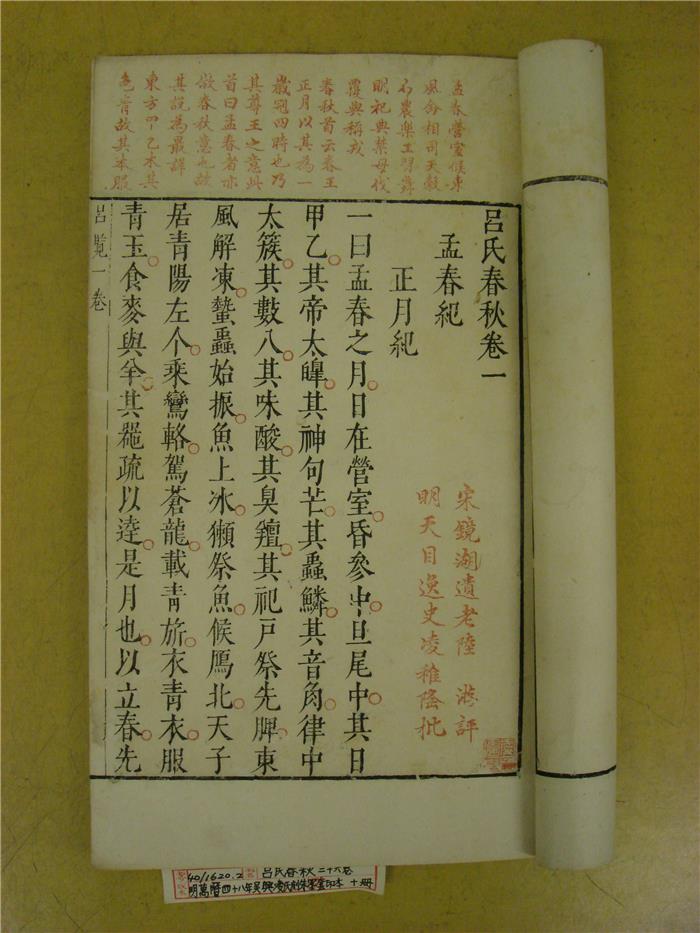 孟春營室候東
風命相司天穀
布農樂工習舞
明祀典禁母伐
覆與稱戎
春秋首云春王
正月以其為一
歲冠四時也乃
其尊王之意與
首曰孟春者亦
故春秋意也故
其說為最詳
東方甲乙木其
色青故其衣服
呂氏春秋卷一
孟春紀
宋鏡湖遺老陸游評
明天目逸史凌稚隆批
正月紀
一曰孟春之月日在營室昏參中旦尾中其日
甲乙其帝太皡其神句芒其蟲鱗其音角律中
太簇其數八其味酸其臭羶其祀戶祭先脾東
風解凍蟄蟲始振魚上冰獺祭魚候鴈北天子
居青陽左个乘鸞輅駕蒼龍載青旂衣青衣服
青玉食麥與羊其器疏以達是月也以立春先
呂覽一卷
40/1620.2 呂氏春秋 二十六卷
明萬曆四十八年吳興凌氏刻朱墨套印本 十冊